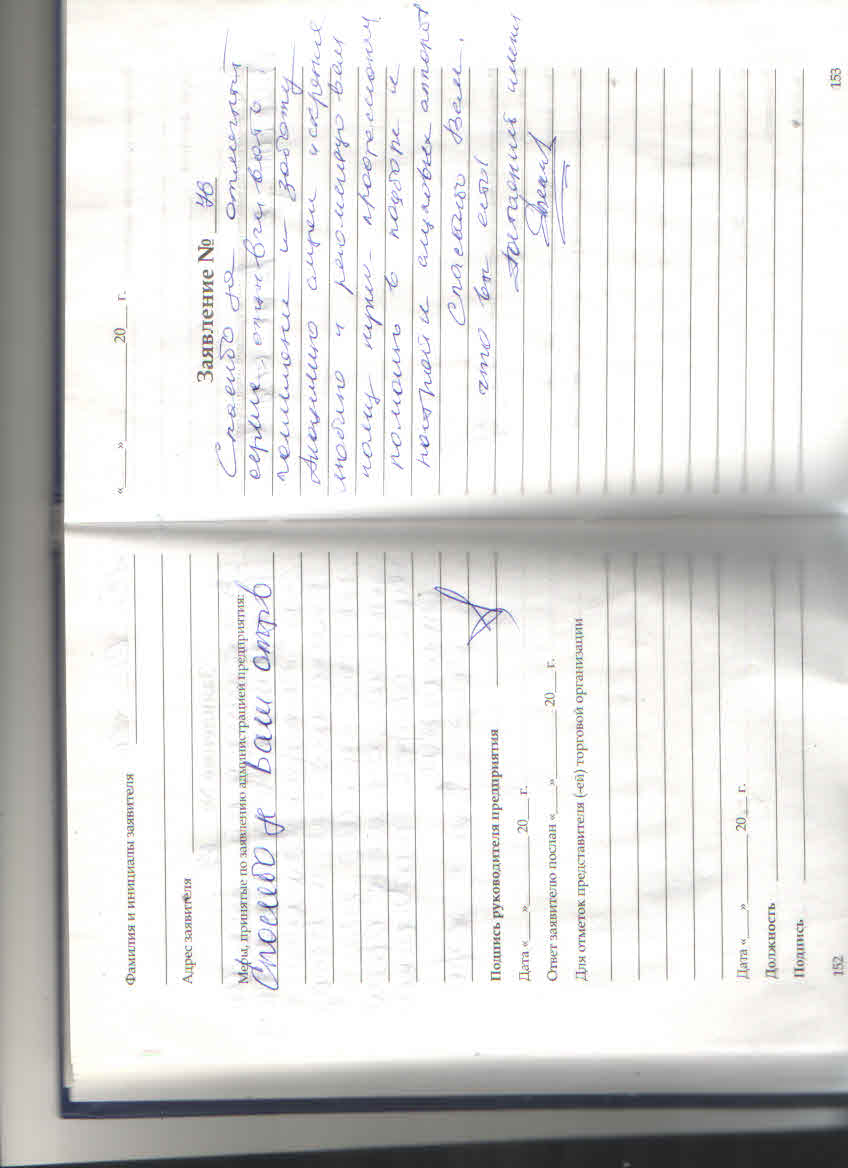 Фамилия и инициалы заявителя
Адрес заявителя
Меры, принятые по заявлению администрацией предприятия:
Спасибо за Ваш отзыв
Подпись руководителя предприятия
Дата «___» ______ 20___ г.
Ответ заявителю послан «___» ______ 20___ г.
Для отметок представителя (-ей) торговой организации
Дата «___» ______ 20___ г.
Должность
Подпись
152
«___» ______ 20___ г.
Заявление № 76
Спасибо за отличный
сервис,
и заботу
искренне
люблю и рекомендую всем
кому нужно профессионал
помощь в подборе и
настройке слуховых аппарат
Спасибо Вам,
что вы есть!
153